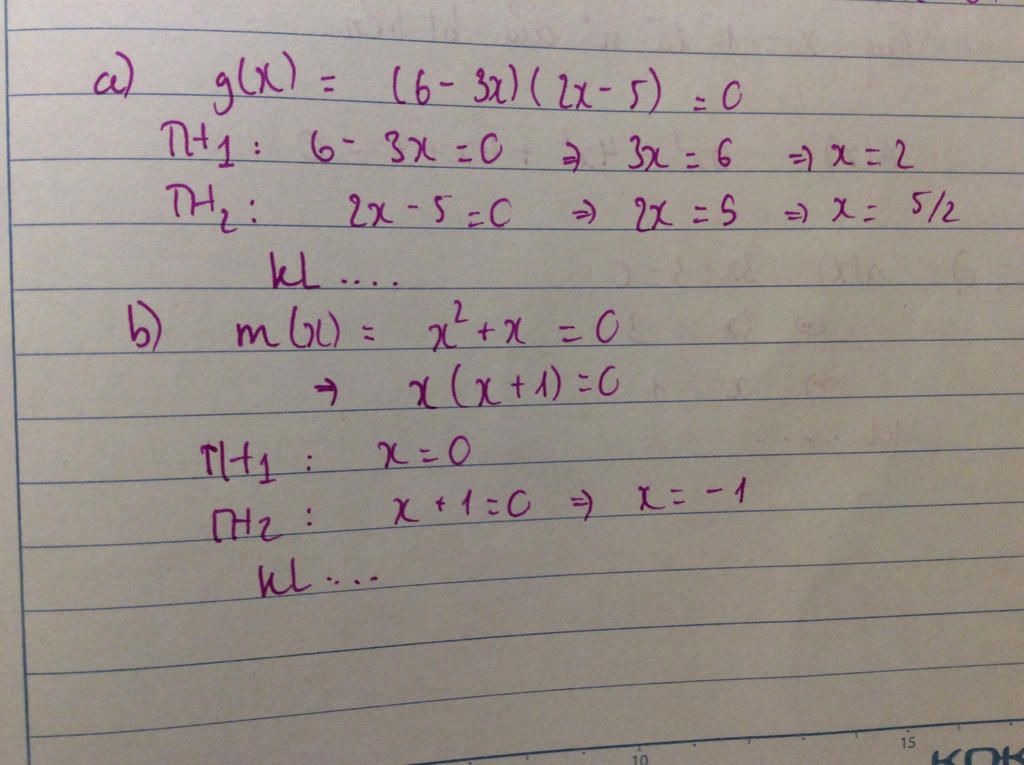 a) g(x) = (6 - 3x)(2x - 5) = 0
TH1: 6 - 3x = 0 => 3x = 6 => x = 2
TH2: 2x - 5 = 0 => 2x = 5 => x = 5/2
kL ....
b) m(x) = x² + x = 0
=> x(x + 1) = 0
TH1: x = 0
TH2: x + 1 = 0 => x = -1
kL ....
10 15